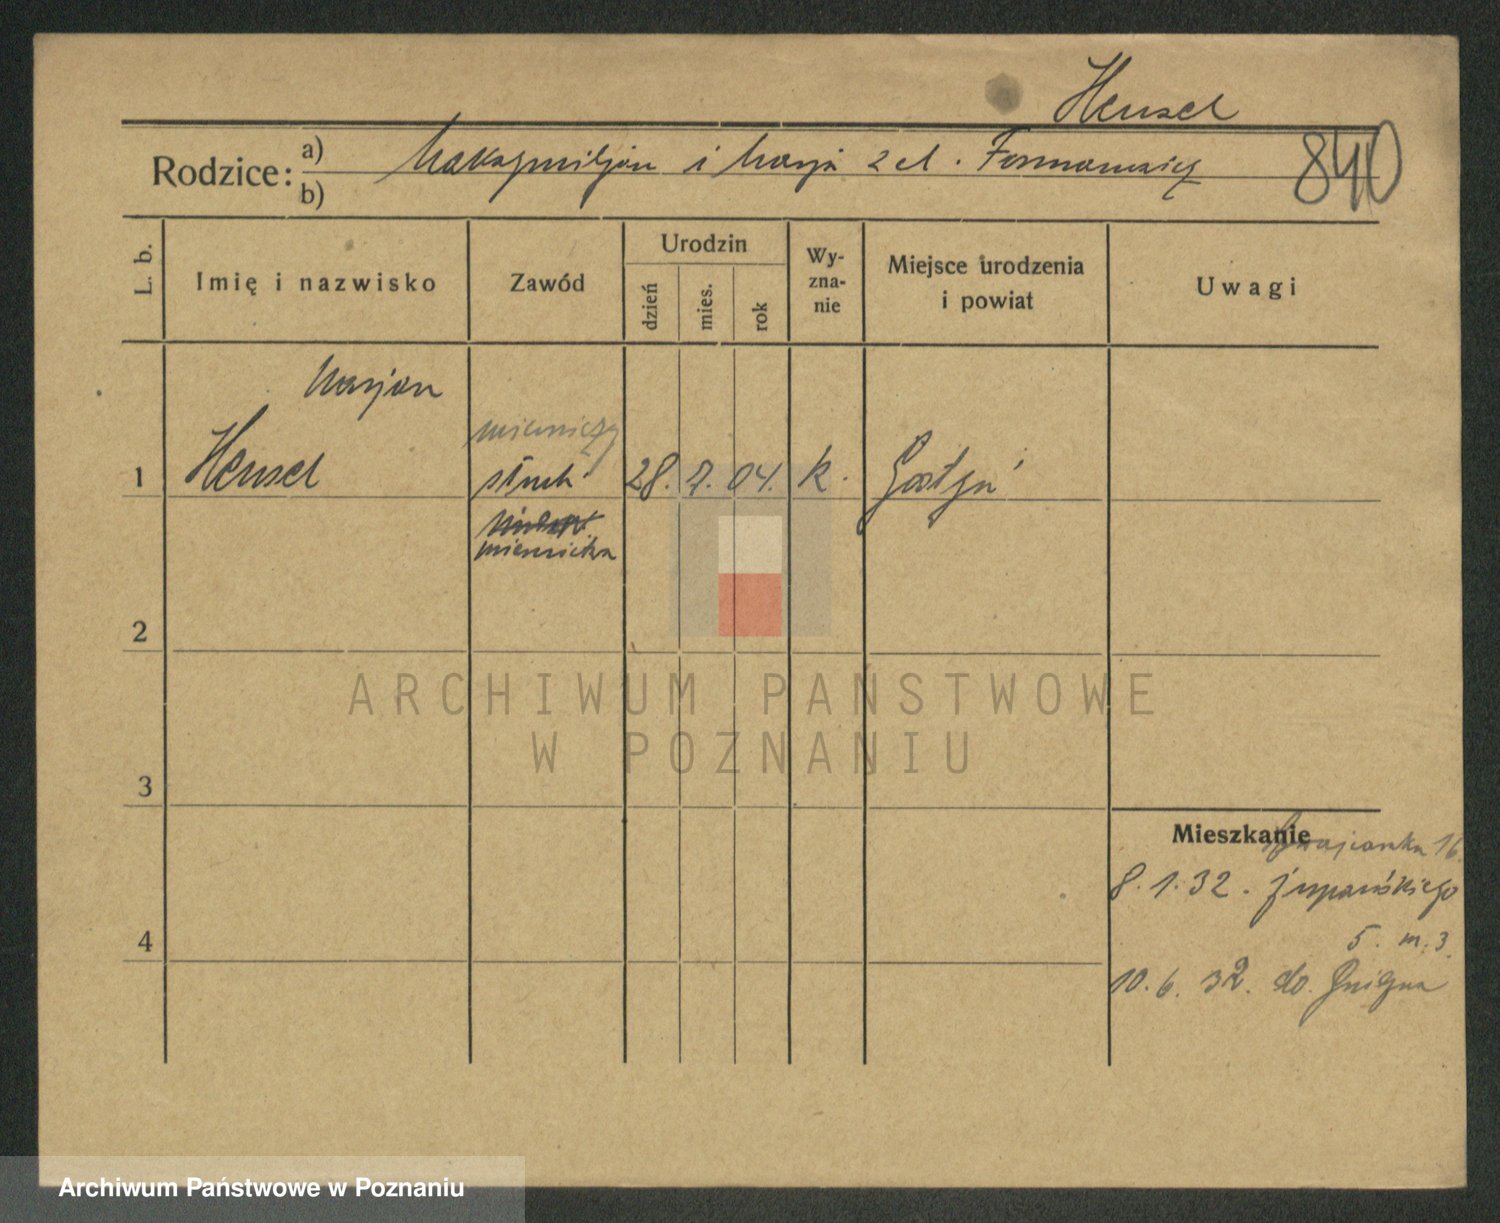 Hensel
Rodzice: a) Maksymiljan i Marja z d. Furmanowicz
b)
840
L. b.
Imię i nazwisko
Zawód
Urodzin
dzień
mies.
rok
Wy-
zna-
nie
Miejsce urodzenia
i powiat
Uwagi
Marjan
mierniczy
1 Hensel słuch 28. 7. 04. k. Gostyń
miernictwa
2
ARCHIWUM PAŃSTWOWE
W POZNANIU
3
Mieszkanie
16.
8.1.32. Żupańskiego
5. m. 3.
4
10.6.32. do Gniezna
Archiwum Państwowe w Poznaniu